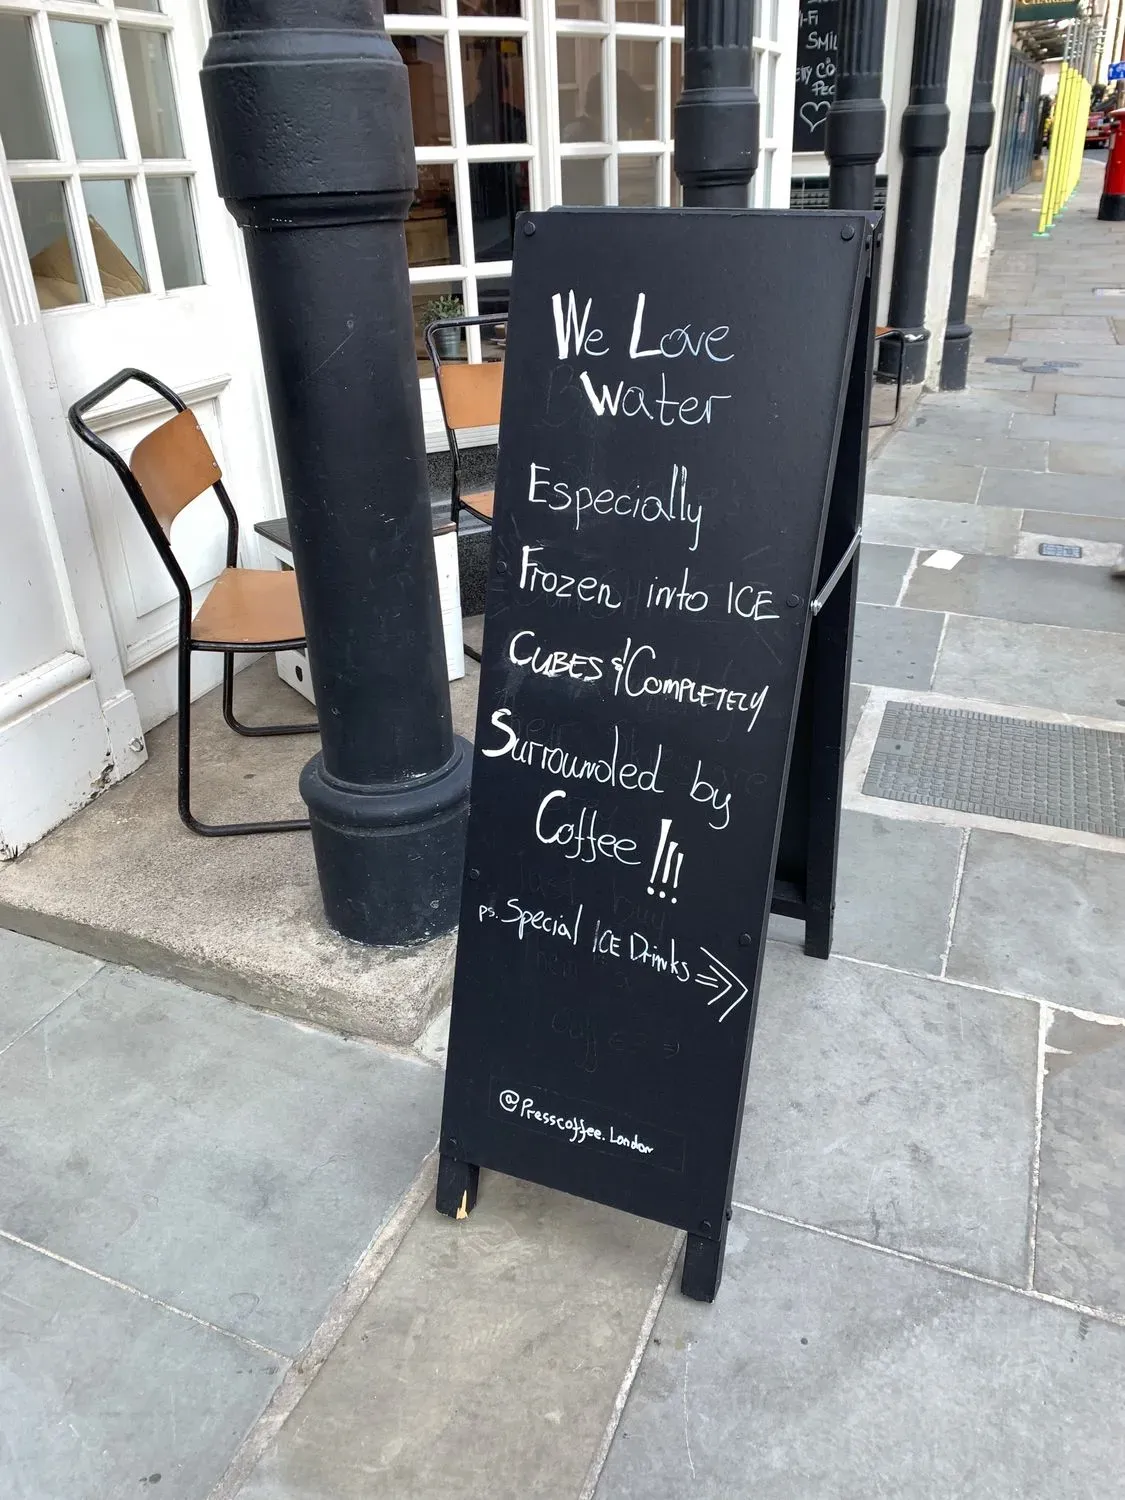 We Love
Water
Especially
Frozen into ICE
CUBES & COMPLETELY
Surrounded by
Coffee !!!
ps. Special ICE Drinks ⇒
@Presscoffee.London
SMIL